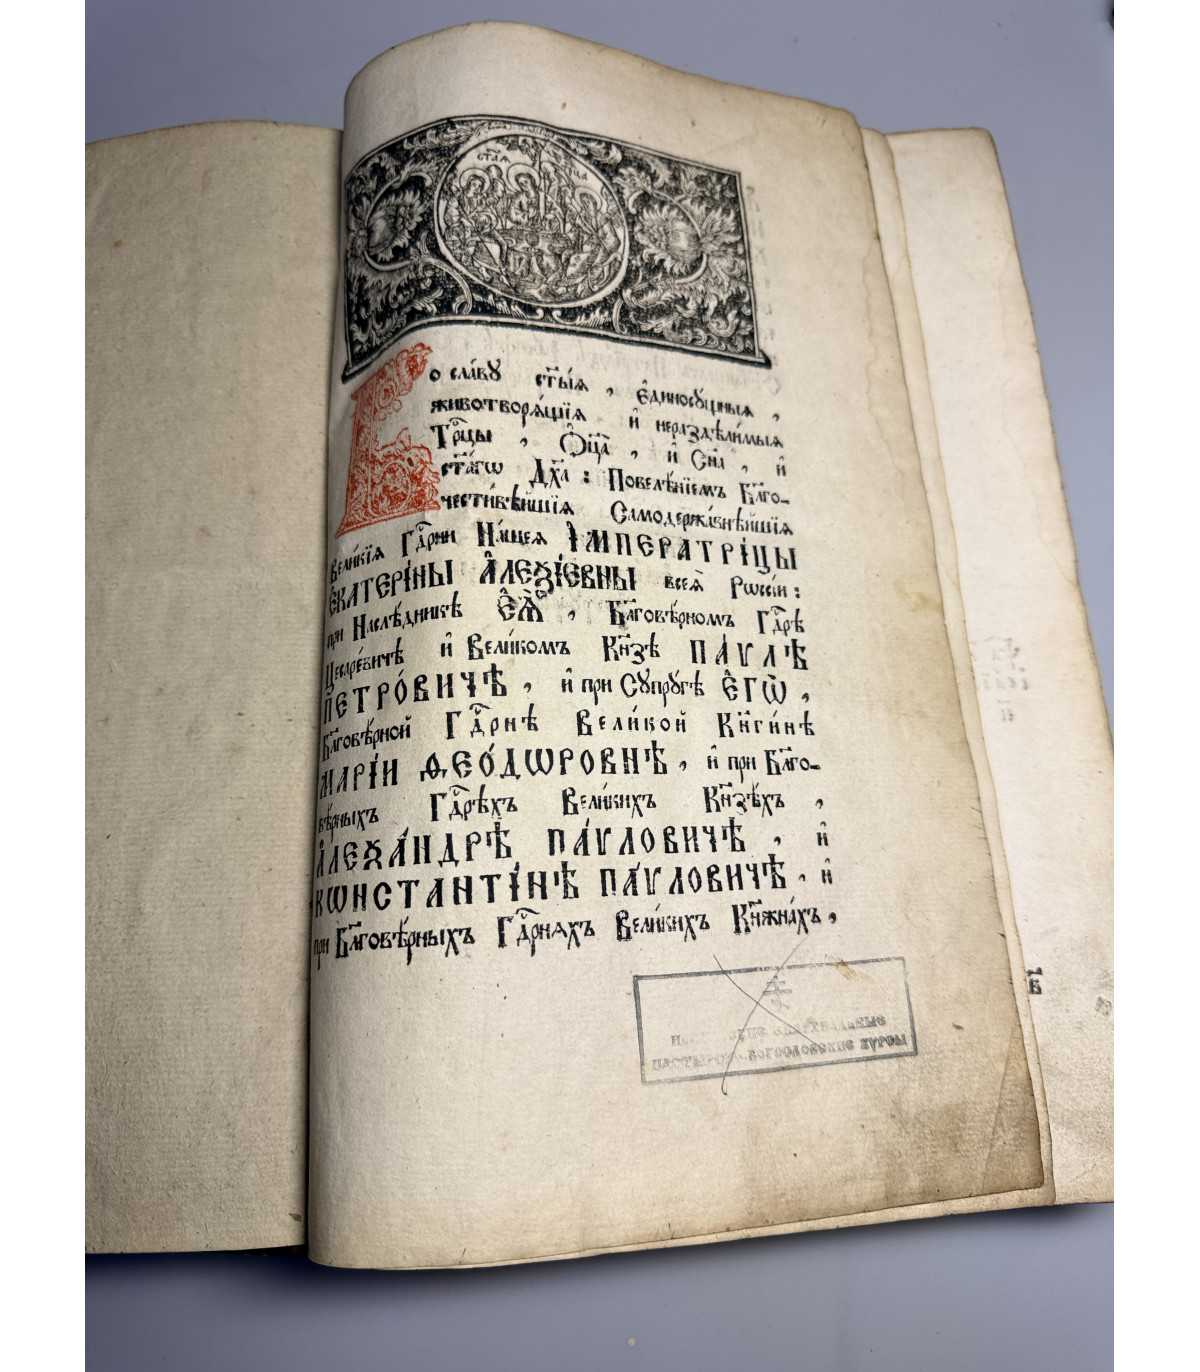 ст҃ая
тр҃ца
Во сла́ву ст҃ы́ѧ , є҆диносꙋ́щныѧ ,
животворѧ́щїѧ и҆ нераздѣли́мыѧ
Тр҃цы , Ѻ҆ц҃а̀ , и҆ Сн҃а , и҆
ст҃а́гѡ Дх҃а : Повелѣ́нїемъ Бл҃го-
чести́вѣйшїѧ Самодержа́внѣйшїѧ
Вели́кїѧ Гд҃рни На́шеѧ І҆МПЕРАТРІ́ЦЫ
Є҆КАТЕРІ́НЫ А҆ЛЕѮІ́ЕВНЫ всеѧ̀ Рѡссі́и :
при Наслѣ́дникѣ Є҆Ѧ̀ , Бл҃говѣ́рномъ Гд҃рѣ
Цесаре́вичѣ и҆ Вели́комъ Кн҃зѣ ПА́ѴЛѢ
ПЕТРО́ВИЧѢ , и҆ при Сꙋпрꙋ́гѣ Є҆ГѠ̀ ,
Бл҃говѣ́рной Гд҃рнѣ Вели́кой Кн҃ги́нѣ
МАРІ́И ѲЕО́ДѠРОВНѢ , и҆ при Бл҃го-
вѣ́рныхъ Гд҃рѣхъ Вели́кихъ Кн҃зѣ́хъ ,
А҆ЛЕѮА́НДРѢ ПА́ѴЛОВИЧѢ , и҆
КѠНСТАНТІ́НѢ ПА́ѴЛОВИЧѢ , и҆
при Бл҃говѣ́рныхъ Гд҃рнѧхъ Вели́кихъ Кн҃жна́хъ ,
БОГОСЛОВСКИЕ КУРСЫ